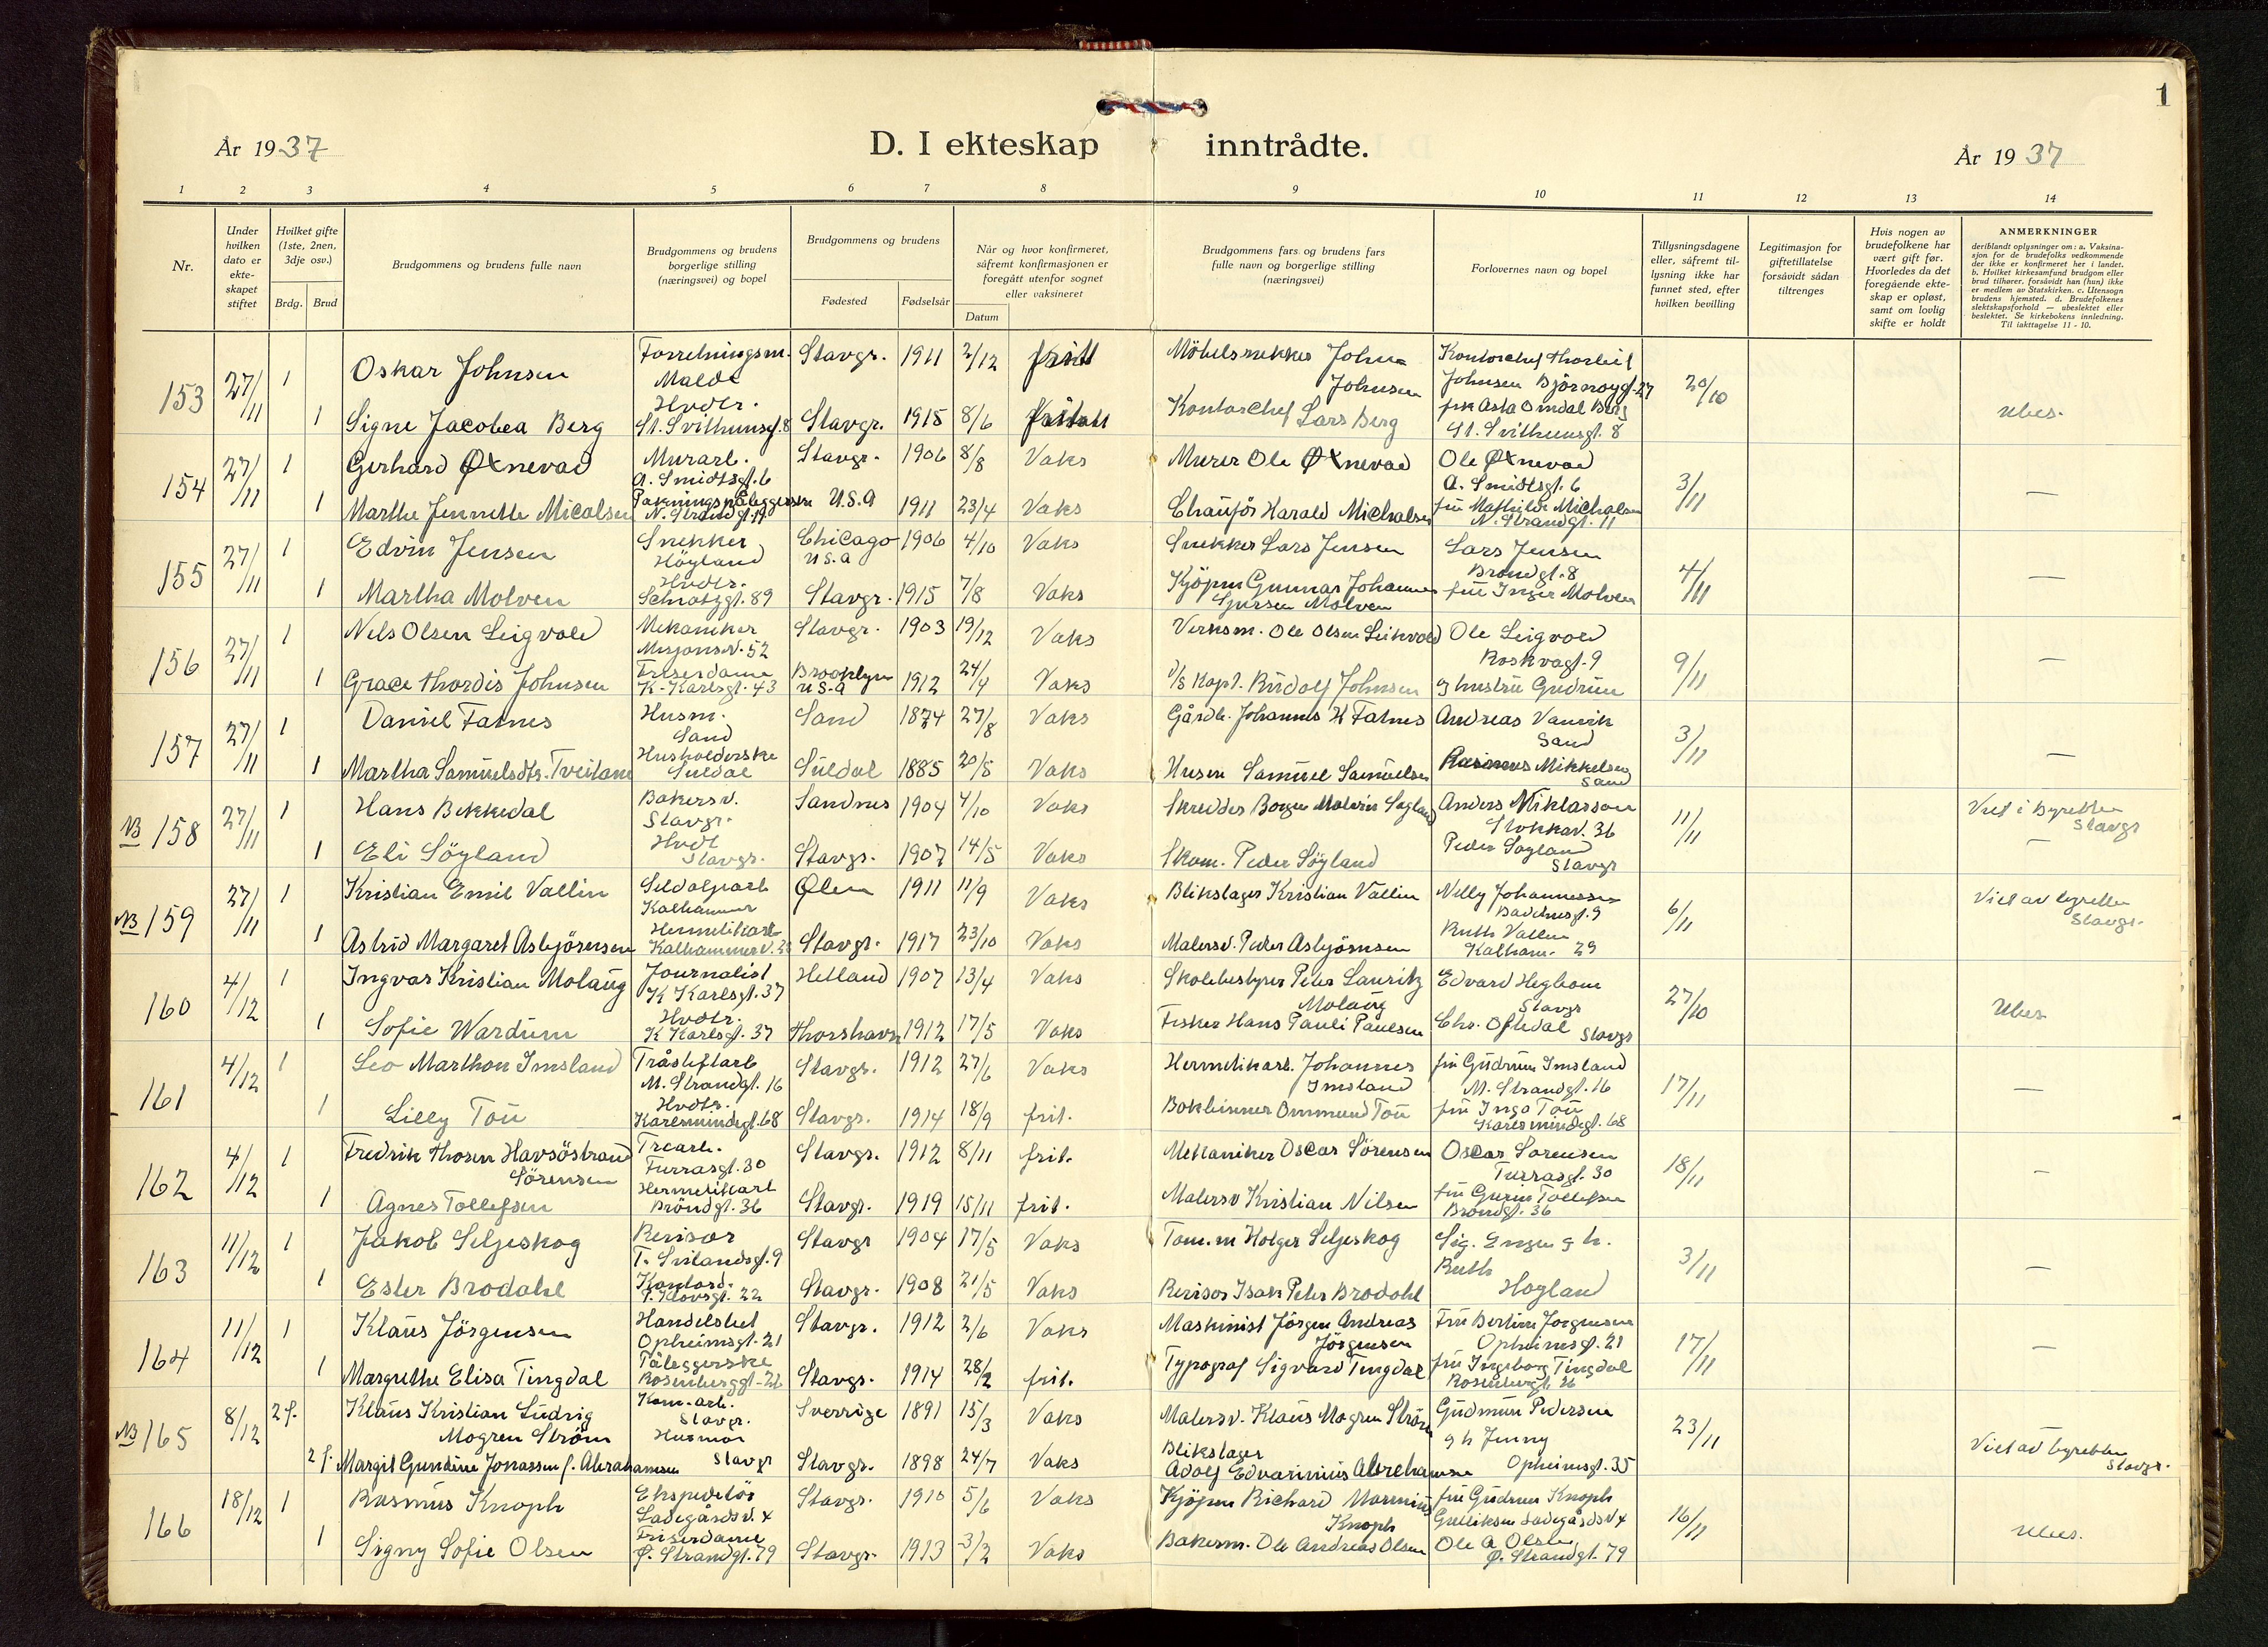 1
År 1937
D. I ekteskap inntrådte.
År 1937
1 2 3 4 5 6 7 8 9 10 11 12 13 14
Nr.
Under hvilken dato er ekte-skapet stiftet
Hvilket gifte (1ste, 2nen, 3dje osv.)
Brdg. Brud
Brudgommens og brudens fulle navn
Brudgommens og brudens borgerlige stilling (næringsvei) og bopel
Brudgommens og brudens
Fødested
Fødselsår
Når og hvor konfirmeret, såfremt konfirmasjonen er foregått utenfor sognet eller vaksineret
Datum
Brudgommens fars og brudens fars fulle navn og borgerlige stilling (næringsvei)
Forlovernes navn og bopel
Tillysningsdagene eller, såfremt til-lysning ikke har funnet sted, efter hvilken bevilling
Legitimasjon for giftetillatelse forsåvidt sådan tiltrenges
Hvis nogen av brudefolkene har vært gift før. Hvorledes da det foregående ekte-skap er opløst, samt om lovlig skifte er holdt
ANMERKNINGER
deriblandt oplysninger om: a. Vaksina-sjon for de brudefolks vedkommende der ikke er konfirmeret her i landet. b. Hvilket kirkesamfund brudgom eller brud tilhører, forsåvidt han (hun) ikke er medlem av Statskirken. c. Utensogn brudens hjemsted. d. Brudefolkenes slektskapsforhold — ubeslektet eller beslektet. Se kirkebokens innledning. Til iakttagelse 11 - 10.
153 27/11 1 Oskar Johnsen Forretningsm. Malde Stavgr. 1911 2/12 frit Möbelsnekker John Johnsen Kontorchef Thorleif Johnsen Björnöygt. 27 20/10
1 Signe Jacobea Berg Hvdtr. St. Svithunsgt. 8 Stavgr. 1915 8/6 Kontorchef Lars Berg frk Asta Omdal Berg St. Svithunsgt. 8 ubes.
154 27/11 1 Gerhard Øxnevad Murarb. A. Smidtsgt. 6 Stavgr. 1906 8/8 Vaks Murer Ole Øxnevad Ole Øxnevad A. Smidtsgt. 6 3/11
1 Marthe Jennette Micalsen N. Strandgt. 11 U.S.A 1911 23/4 Vaks Chauför Harald Michalsen frü Mathilde Michalsen N. Strandgt. 11 —
155 27/11 1 Edvin Jensen Snekker Höyland Chicago U.S.A 1906 4/10 Vaks Snekker Lars Jensen Lars Jensen Bröndgt. 8 4/11
1 Martha Molven Hvdtr. Schiøtzgt. 89 Stavgr. 1915 7/8 Vaks Kjöpm Gunnar Johannes Molven frü Inger Molven —
156 27/11 1 Nils Olsen Leigvold Mekaniker Misjonsv. 52 Stavgr. 1903 19/12 Vaks Verksm. Ole Olsen Leikvold Ole Leigvold Roskvagt. 9 9/11
1 Grace Thordis Johnsen Friserdame K. Karlsgt. 43 Brooklyn U.S.A 1912 24/4 Vaks D/S Kapt. Rüdolf Johnsen og hustrü Gudrün —
157 27/11 1 Daniel Fatnes Husm. Sand Sand 1874 27/8 Vaks Gårdb. Johannes K Fatnes Andreas Vanvik Sand 3/11
1 Martha Samüelsdtr. Tveitane Husholderske Süldal Süldal 1885 20/5 Vaks Husm Samüel Samüelsen Rasmus Mikkelsen Sand —
NB 158 27/11 1 Hans Bekkedal Bakersv. Stavgr. Sandnes 1904 4/10 Vaks Anders Niklasson Stokkav. 36 11/11 Viet i Byretten Stavgr
1 Eli Söyland Hvdt Stavgr. Stavgr. 1907 14/5 Vaks Skom. Peder Söyland Peder Søyland Stavgr —
NB 159 27/11 1 Kristian Emil Vallin Kalhammer Ølen 1911 11/9 Vaks Blikslager Kristian Vallin Nelly Johannessen 6/11 Viet av byretten Stavgr.
1 Astrid Margaret Asbjörnsen Hermetikarb Kalhammerv. 29 Stavgr. 1917 23/10 Vaks Malersv. Peder Asbjörnsen Ruth Vallin Kalham. 29
160 4/12 1 Ingvar Kristian Molaug Journalist K Karlsgt. 37 Hetland 1907 13/4 Vaks Skolebestyrer Peter Lauritz Molaug Edvard Hegbom Stavgr 27/10
1 Sofie Wardum Hvdtr. K Karlsgt. 37 Thorshavn 1912 17/5 Vaks Fisker Hans Pauli Paulsen Chr. Oftedal Stavgr Ubes
161 4/12 1 Leo Marthon Imsland Tråstiftarb M. Strandgt. 16 Stavgr. 1912 27/6 Vaks Hermetikarb. Johannes Imsland frü Güdrün Imsland M. Strandgt. 16 17/11
1 Lilly Toü Hvdtr. Karlsmindegt. 68 Stavgr. 1914 18/9 frit. Bokbinner Ommund Toü frü Inga Toü Karlsmindegt. 68 —
162 4/12 1 Fredrik Thosen Havsöstrand Sörensen Trearb. Turrasgt. 30 Stavgr. 1912 8/11 frit. Mekaniker Oscar Sörensen Oscar Sörensen Turrasgt. 30 18/11
1 Agnes Tollefsen Hermetikarb Bröndgt. 36 Stavgr. 1919 15/11 frit. Malersv Kristian Nilsen frü Gurin Tollefsen Bröndgt. 36 —
163 11/12 1 Jakob Seljeskog Revisor Stavgr 1904 17/5 Vaks Tom. m Holger Seljeskog 3/11
1 Ester Brodahl Kontord. Stavgr. 1908 21/5 Vaks Revisor Isak Peter Brodahl Ruth Hogland —
164 11/12 1 Klaüs Jörgensen Handelsbet Opheimsgt. 21 Stavgr. 1912 2/6 Vaks Maskinist Jörgen Andreas Jörgensen Frü Bertine Jörgensen Opheimsgt. 21 17/11
1 Margrethe Elisa Tingdal Påleggerske Rosenberggt. 26 Stavgr. 1914 28/2 frit. Typograf Sigvard Tingdal frü Ingeborg Tingdal Rosenbergt. 26 —
NB 165 8/12 2 f. Klaüs Kristian Lüdvig Mogren Ström Kom. arb. Stavgr. Sverrige 1891 15/3 Vaks Malersv. Klaüs Mogren Ström Güdmün Pedersen 23/11
2 f. Margit Gundine Jonassen f. Abrahamsen Husmor Stavgr Stavgr. 1898 24/7 Vaks Blikslager Adolf Edvarinius Abrahamsen g h Jenny Opheimsgt. 35 Viet av byretten Stavgr.
166 18/12 1 Rasmüs Knoph Ekspeditör Ladegårdsv. 4 Stavgr. 1910 5/6 Vaks Kjöpm Richard Knoph frü Güdrün Knoph Ladegårdsv 4 16/11
1 Signy Sofie Olsen Friserdame Ø. Strandgt. 79 Stavgr. 1913 3/2 Vaks Bakerm. Ole Andreas Olsen Ole A Olsen Ø. Strandgt. 79 ubes.